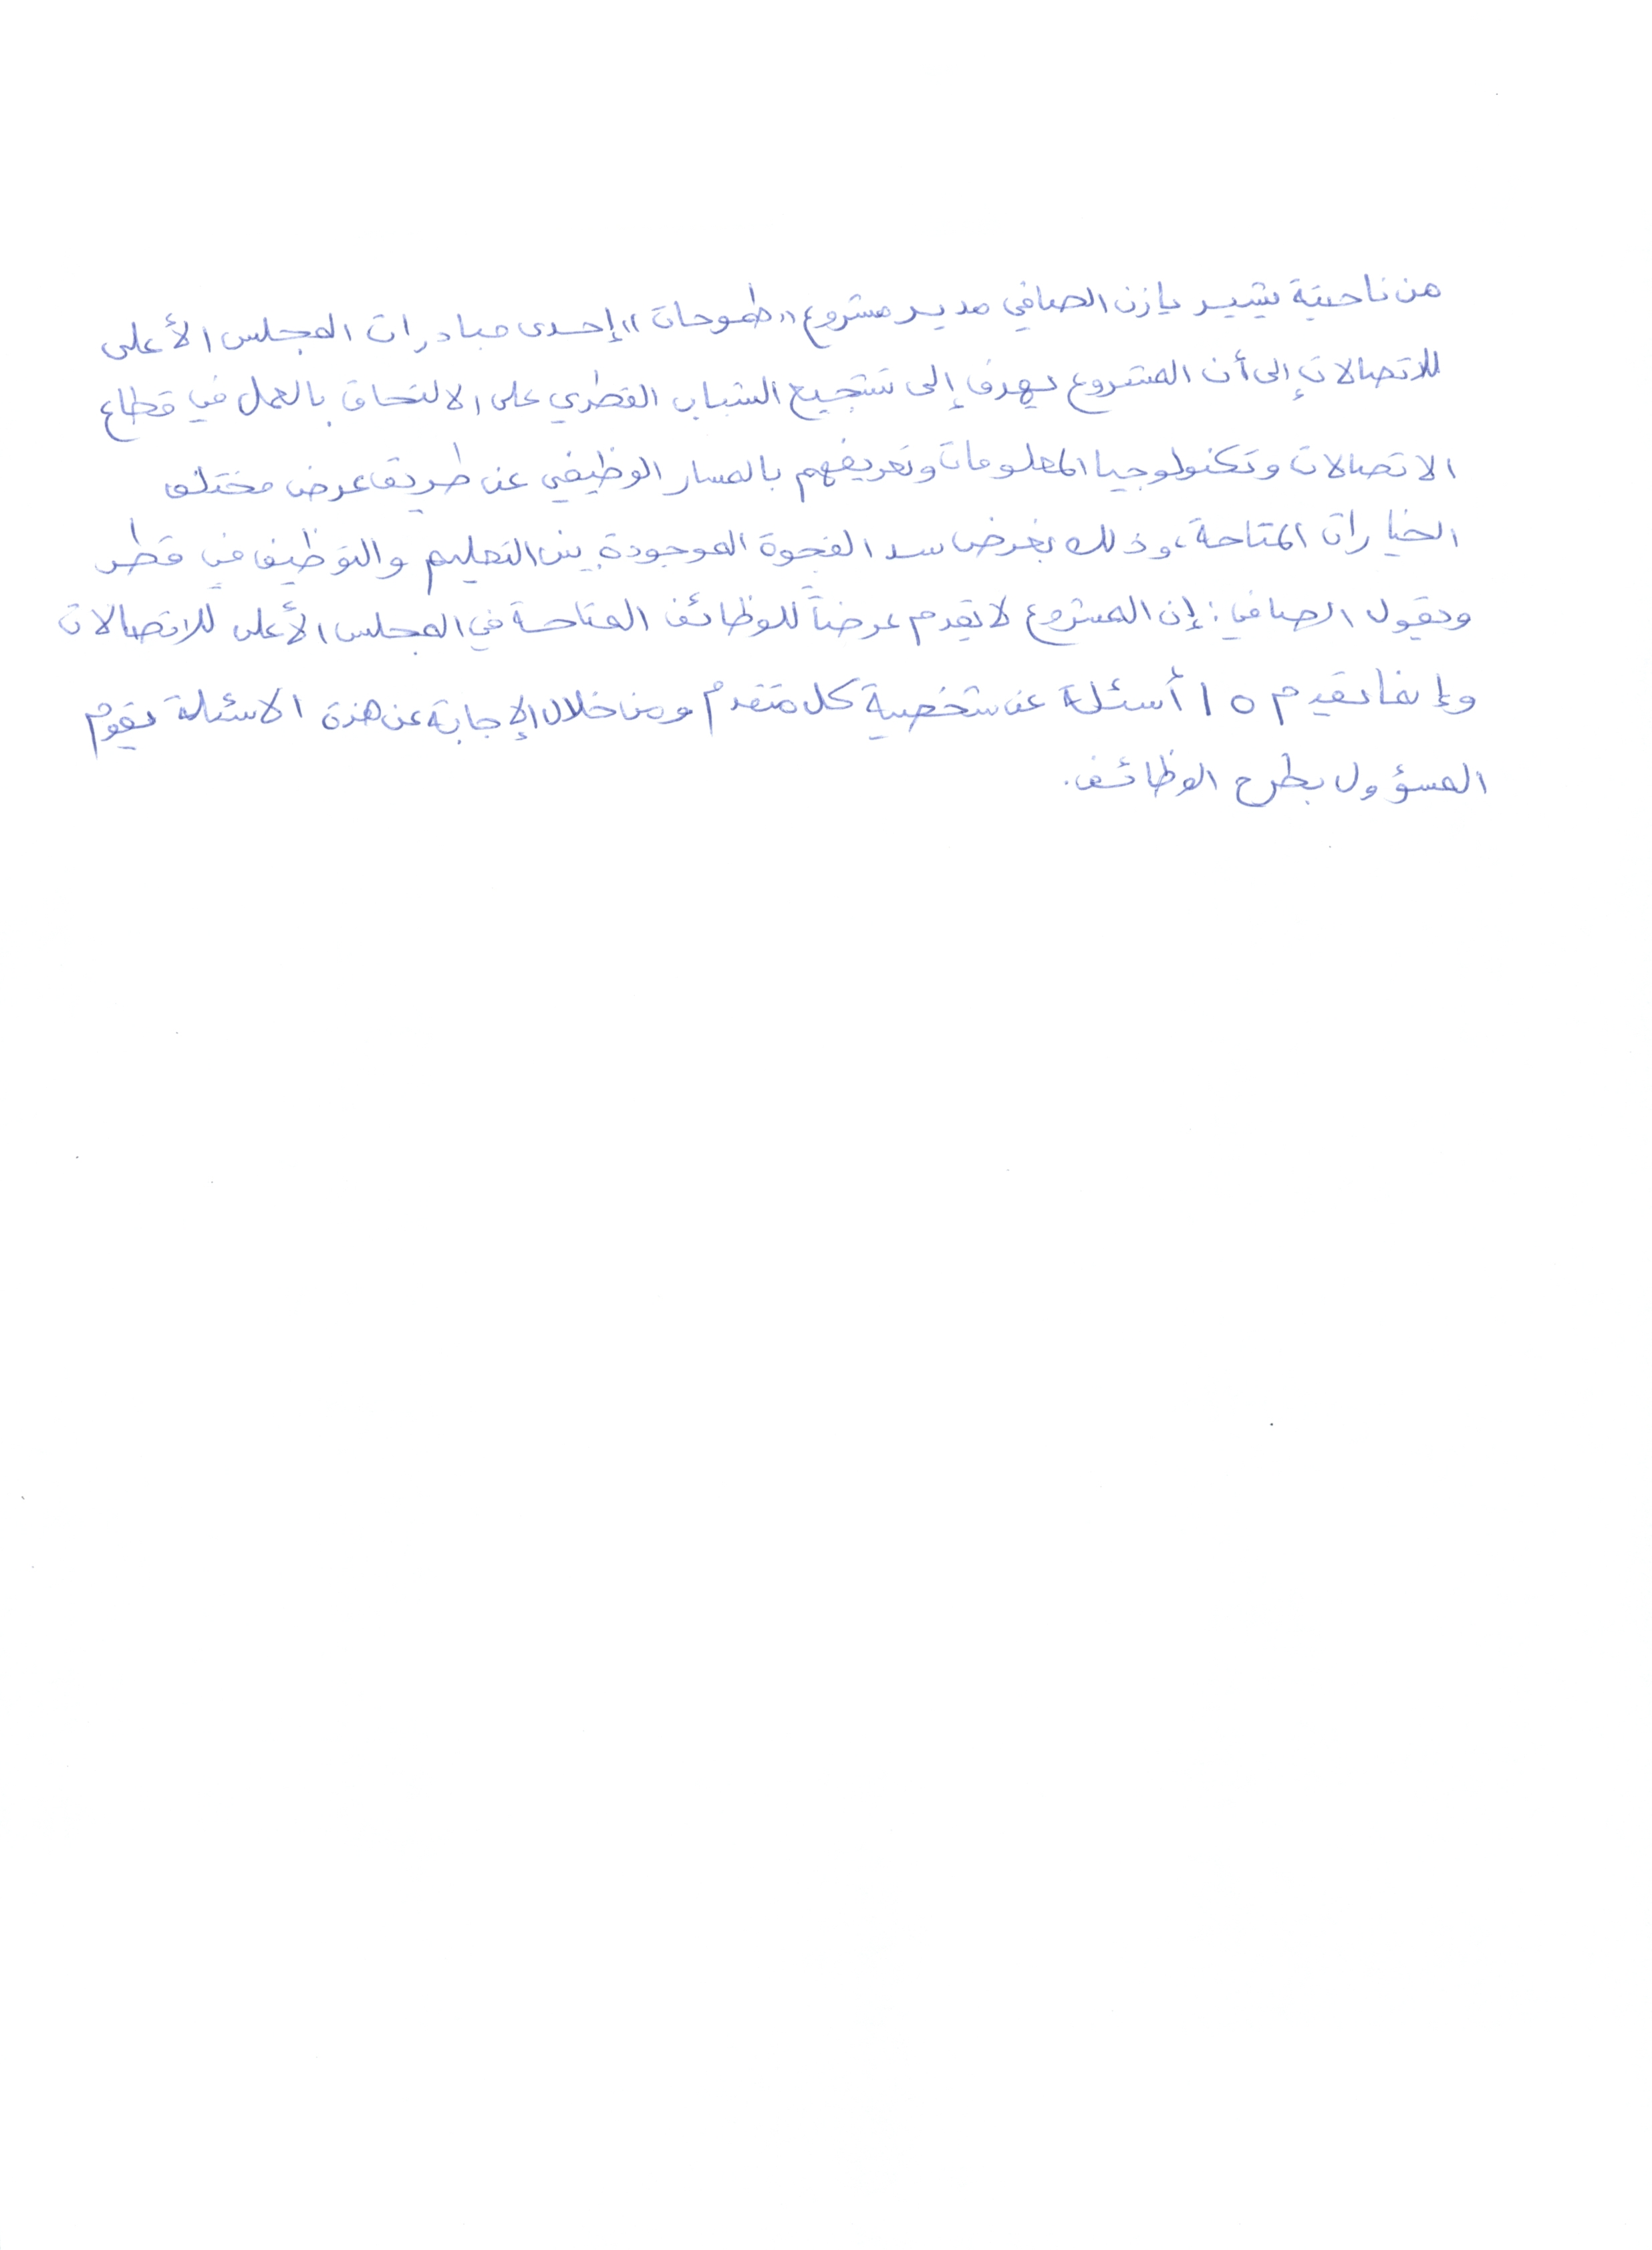 من ناحيتة يشير يازن الصافي مدير مشروع "طموحات" إحدى مبادرات المجلس الأعلى
للاتصالات إلى أن المشروع يهدف إلى تشجيع الشباب القطري على الالتحاق بالعمل في قطاع
الاتصالات وتكنولوجيا المعلومات وتعريفهم بالمسار الوظيفي عن طريق عرض مختلف
الخيارات المتاحة، وذلك بغرض سد الفجوة الموجودة بين التعليم والتوظيف في قطر
ويقول الصافي: إن المشروع لا يقدم عرضاً للوظائف المتاحة في المجلس الأعلى للاتصالات
وإنما تقيدم ١٥ أسئلة عن شخصية كل متقدم ومن خلال الإجابة عن هذة الاسئلة يقوم
المسؤول بطرح الوظائف.